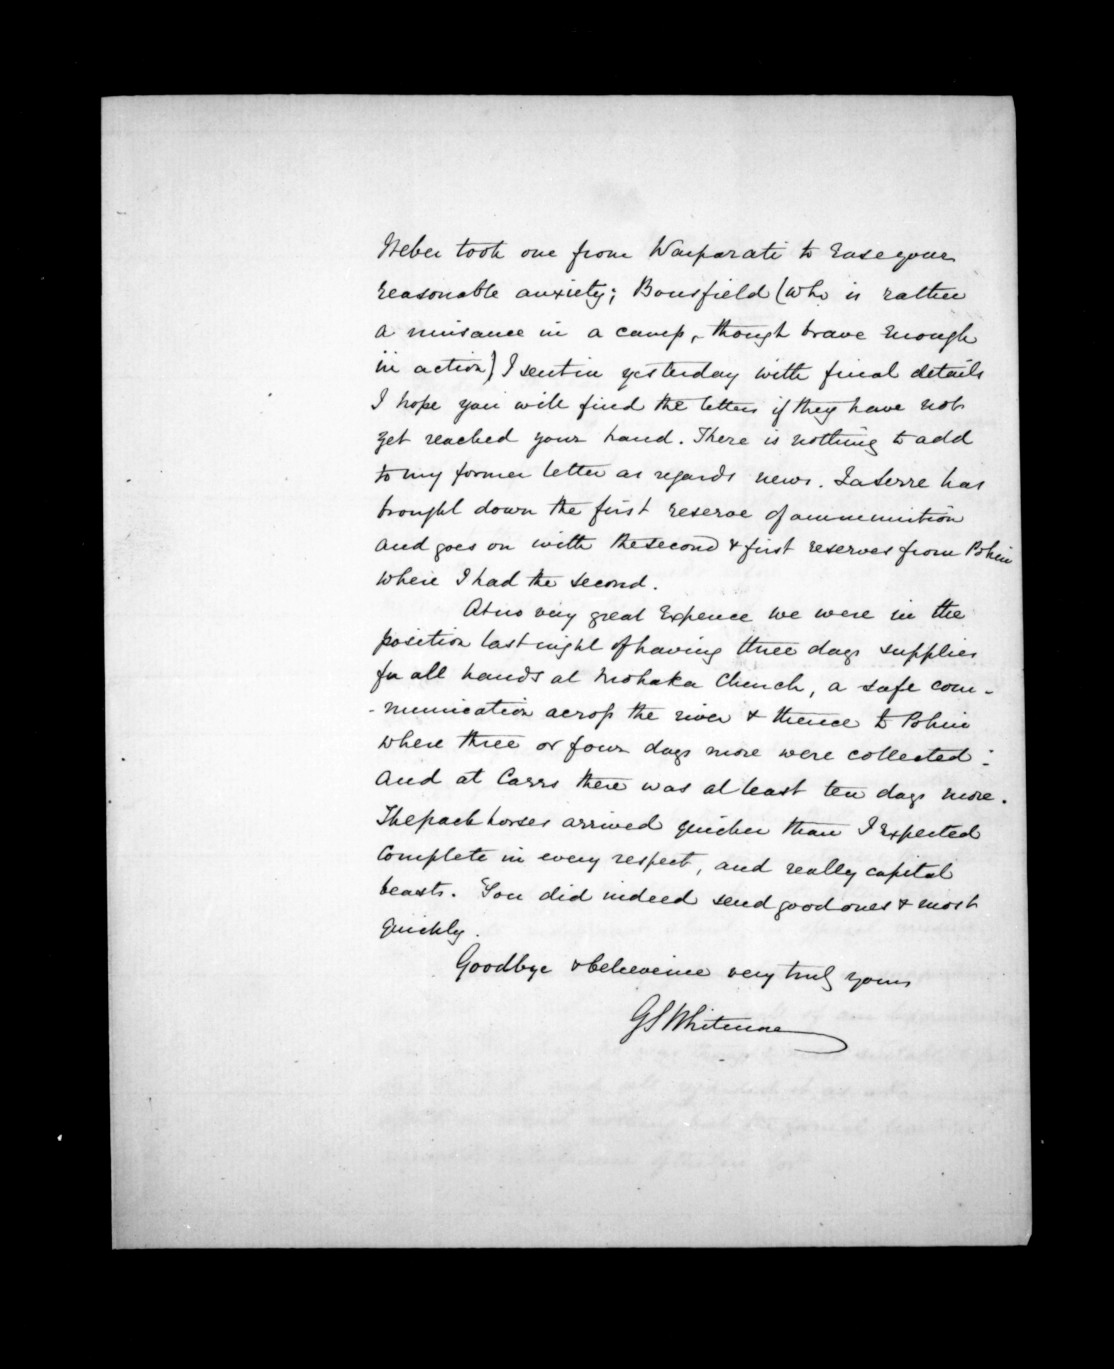 Weber took one from Waiparati to ease your
reasonable anxiety; Bousfield (who is rather
a nuisance in a camp, though brave enough
in action) I sent in yesterday with final details
I hope you will find the letters if they have not
yet reached your hand. There is nothing to add
to my former letter as regards news. LaSerre has
brought down the first reserve of ammunition
and goes on with the second & first reserves from Pohui
where I had the second.
At no very great Expence we were in the
position last night of having three days supplies
for all hands at Mohaka Church, a safe com-
-munication across the river & thence to Pohui
where three or four days more were collected:
and at Carrs there was at least ten days more.
The pack horses arrived quicker than I Expected
Complete in every respect, and really capital
beasts. You did indeed send good ones & most
quickly.
Goodbye & believe me very truly yours
GSWhitmore